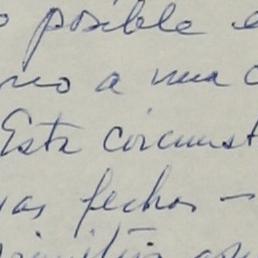 o posible e
mo a una c
Esta circunst
vas fechas —